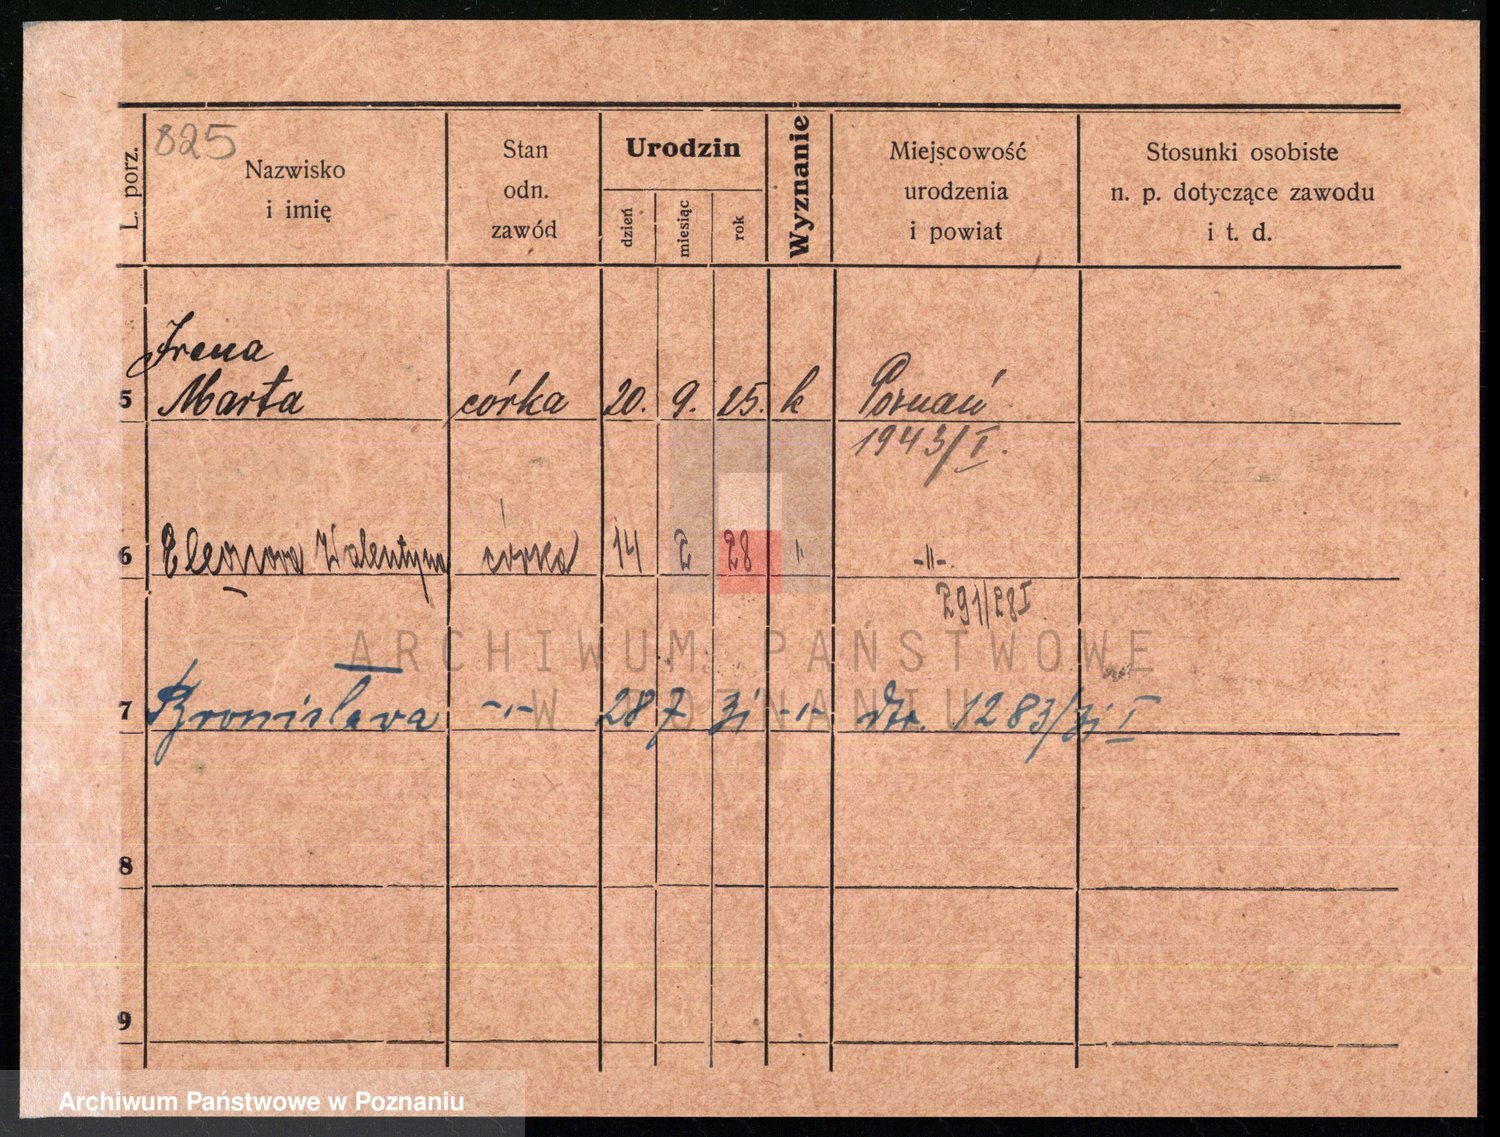 825
L. porz.
Nazwisko
i imię
Stan
odn.
zawód
Urodzin
dzień
miesiąc
rok
Wyznanie
Miejscowość
urodzenia
i powiat
Stosunki osobiste
n. p. dotyczące zawodu
i t. d.
Irena
5 Marta córka 20. 9. 25. k Poznań
1943/I.
6 Eleonora Walentyna córka 14 2 28 " -"-
291/28 I
ARCHIWUM PAŃSTWOWE
W POZNANIU
7 Bronisława -"- 28 7 31 -"- dto. 1283/31 I
8
9
Archiwum Państwowe w Poznaniu